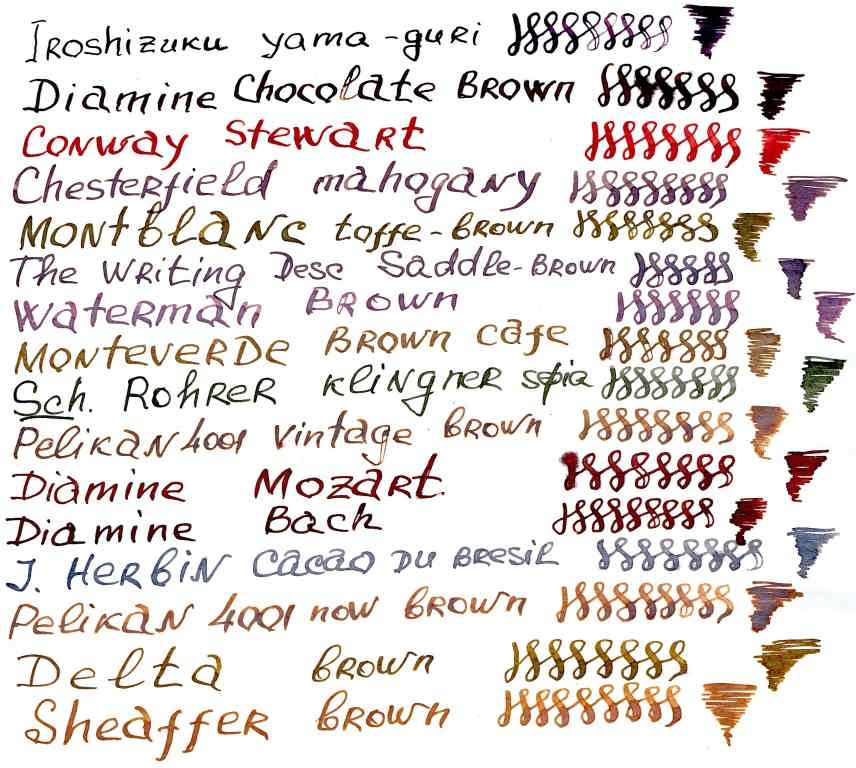 Iroshizuku yama-guri
Diamine Chocolate Brown
Conway Stewart
Chesterfield mahogany
Montblanc toffe-brown
The Writing Desc Saddle-Brown
Waterman Brown
Monteverde Brown cafe
Sch. Rohrer Klingner sepia
Pelikan 4001 Vintage brown
Diamine Mozart.
Diamine Bach
J. Herbin Cacao du Bresil
Pelikan 4001 now brown
Delta brown
Sheaffer brown